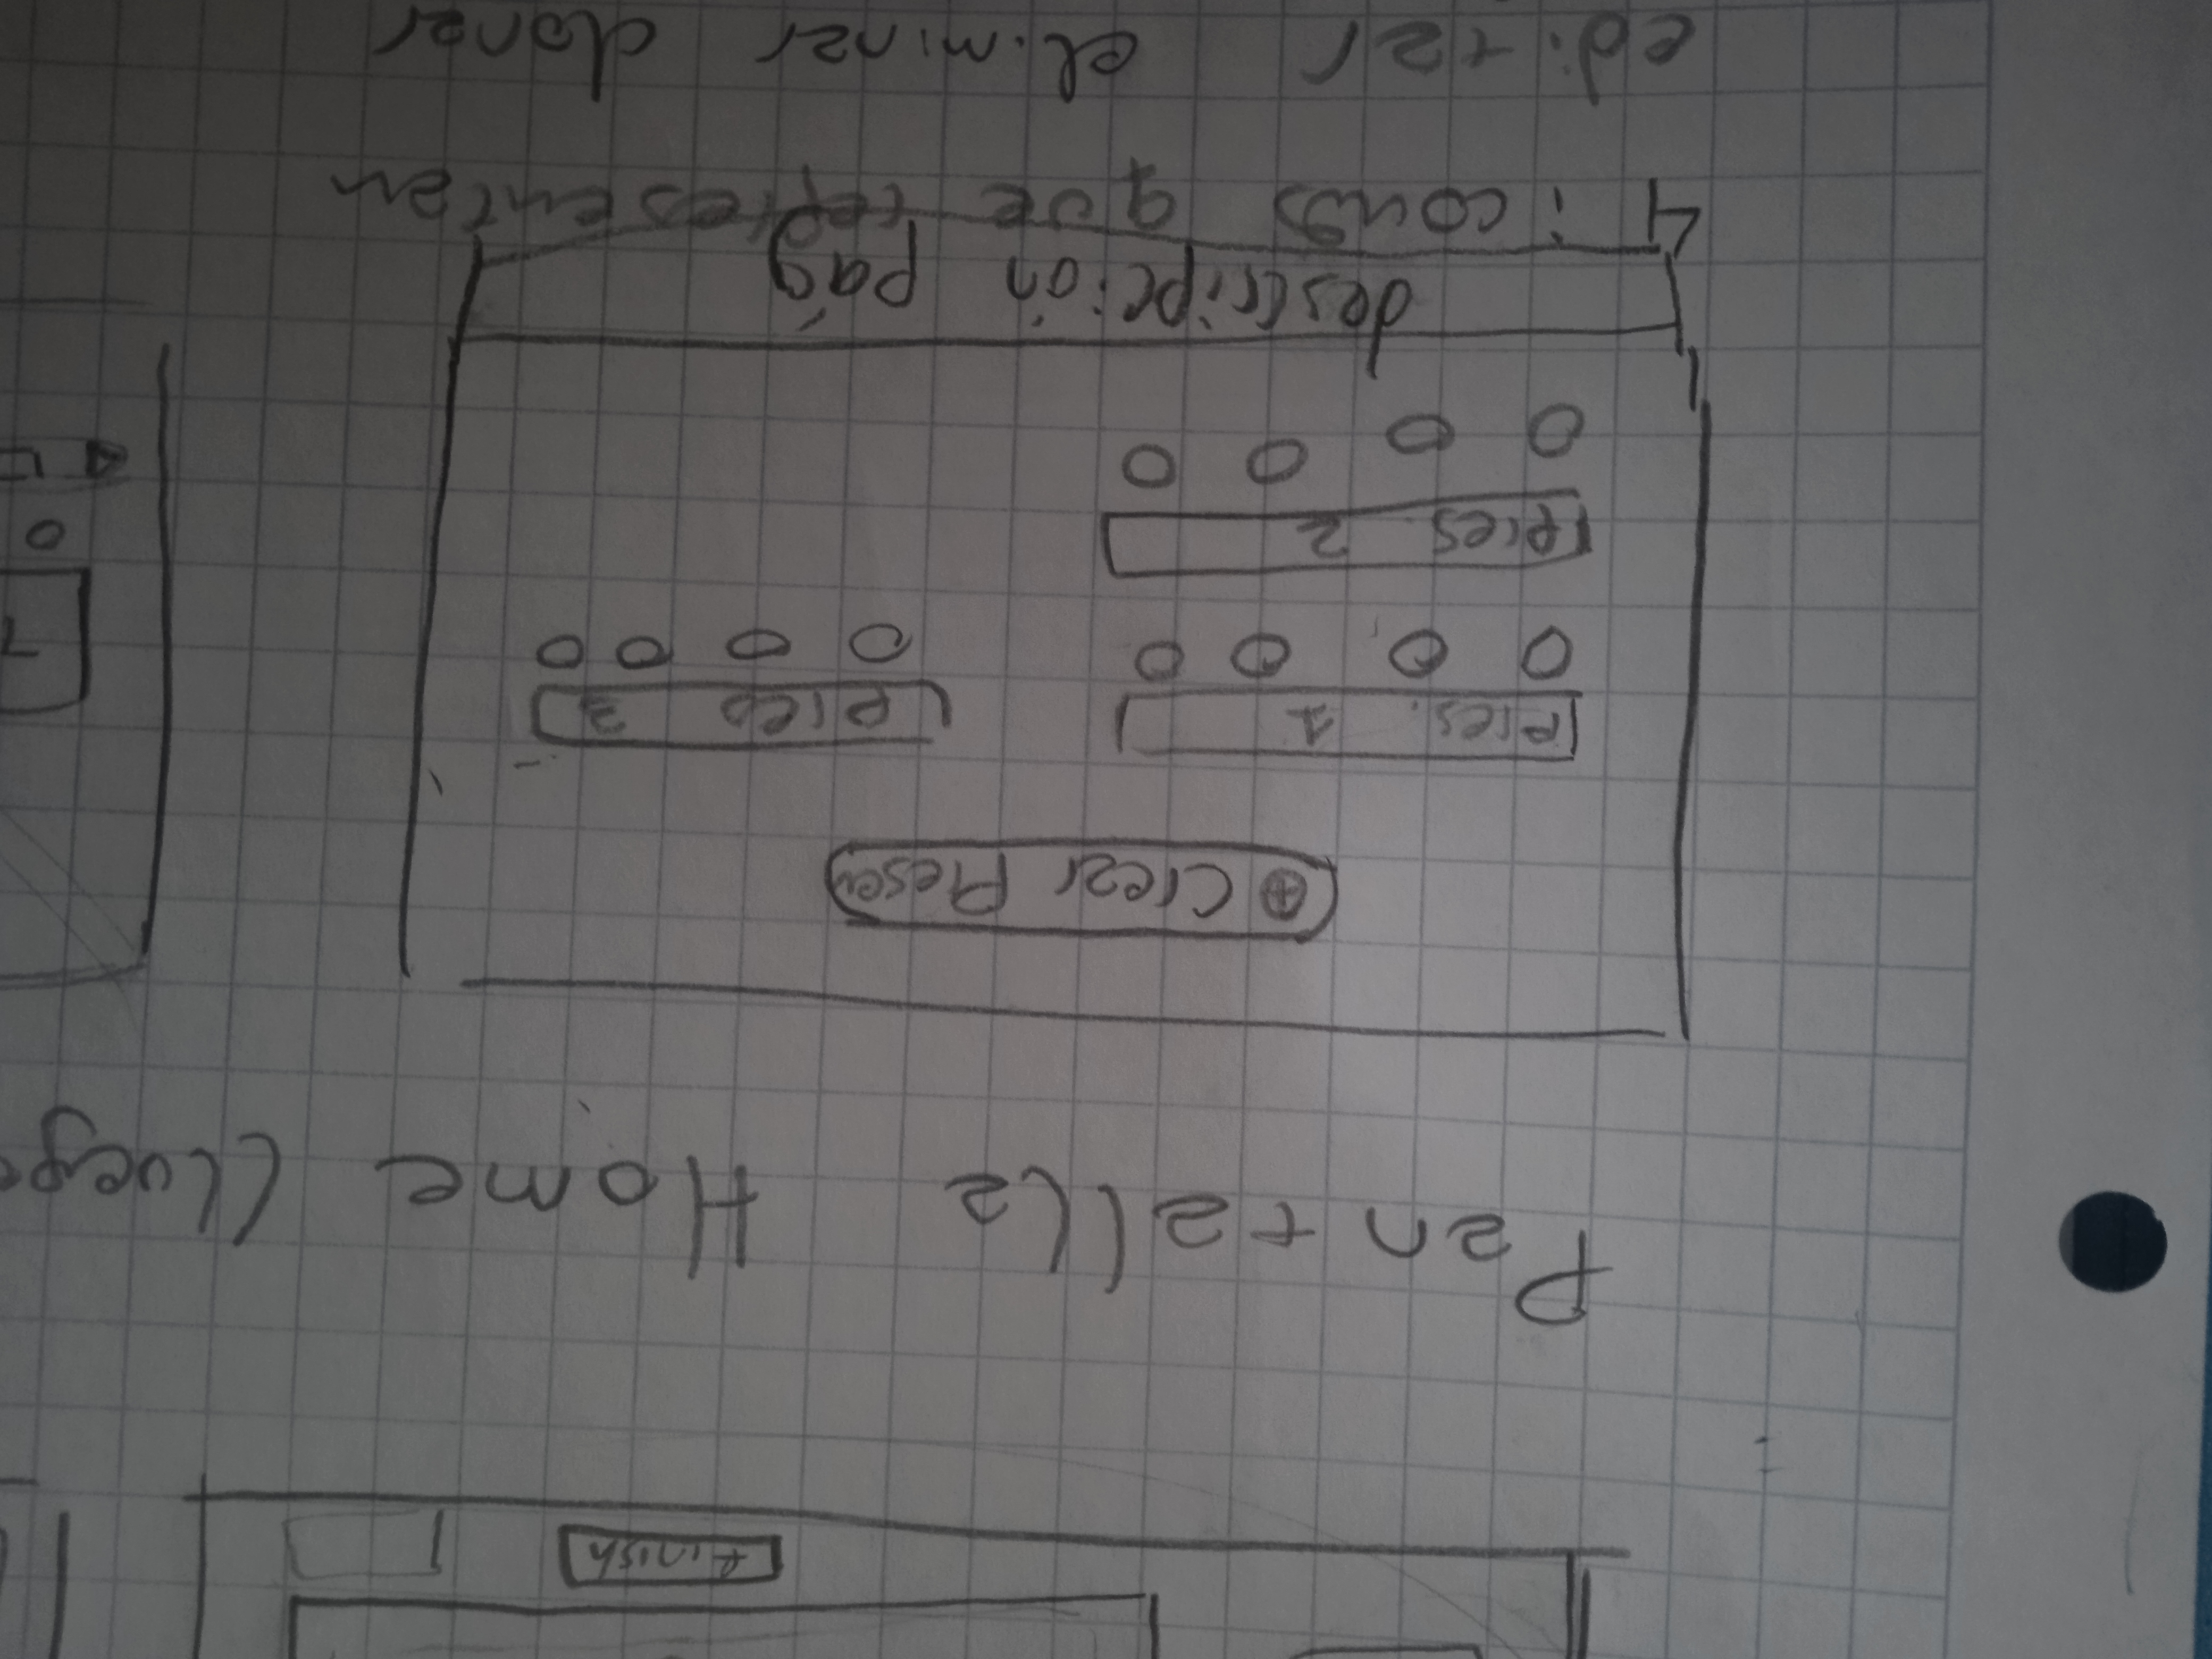 finish
Pantalla Home (luego
⊕ Crear Presen
Pres. 1
pres 3
pres 2
descripción pág
4 iconos que representan
editar eliminar clonar